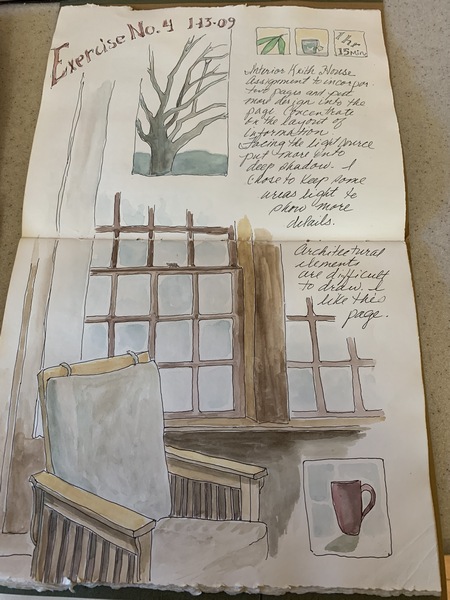 Exercise No. 4 1-13-09
1 hr
15 min
Interior Keith House
assignment to incorpor
text pages and put
more design into the
page. Concentrate
on the layout of
information
Facing the light source
put more into
deep shadow. I
chose to keep some
areas light to
show more
details.
Architectural
elements
are difficult
to draw. I
like this
page.